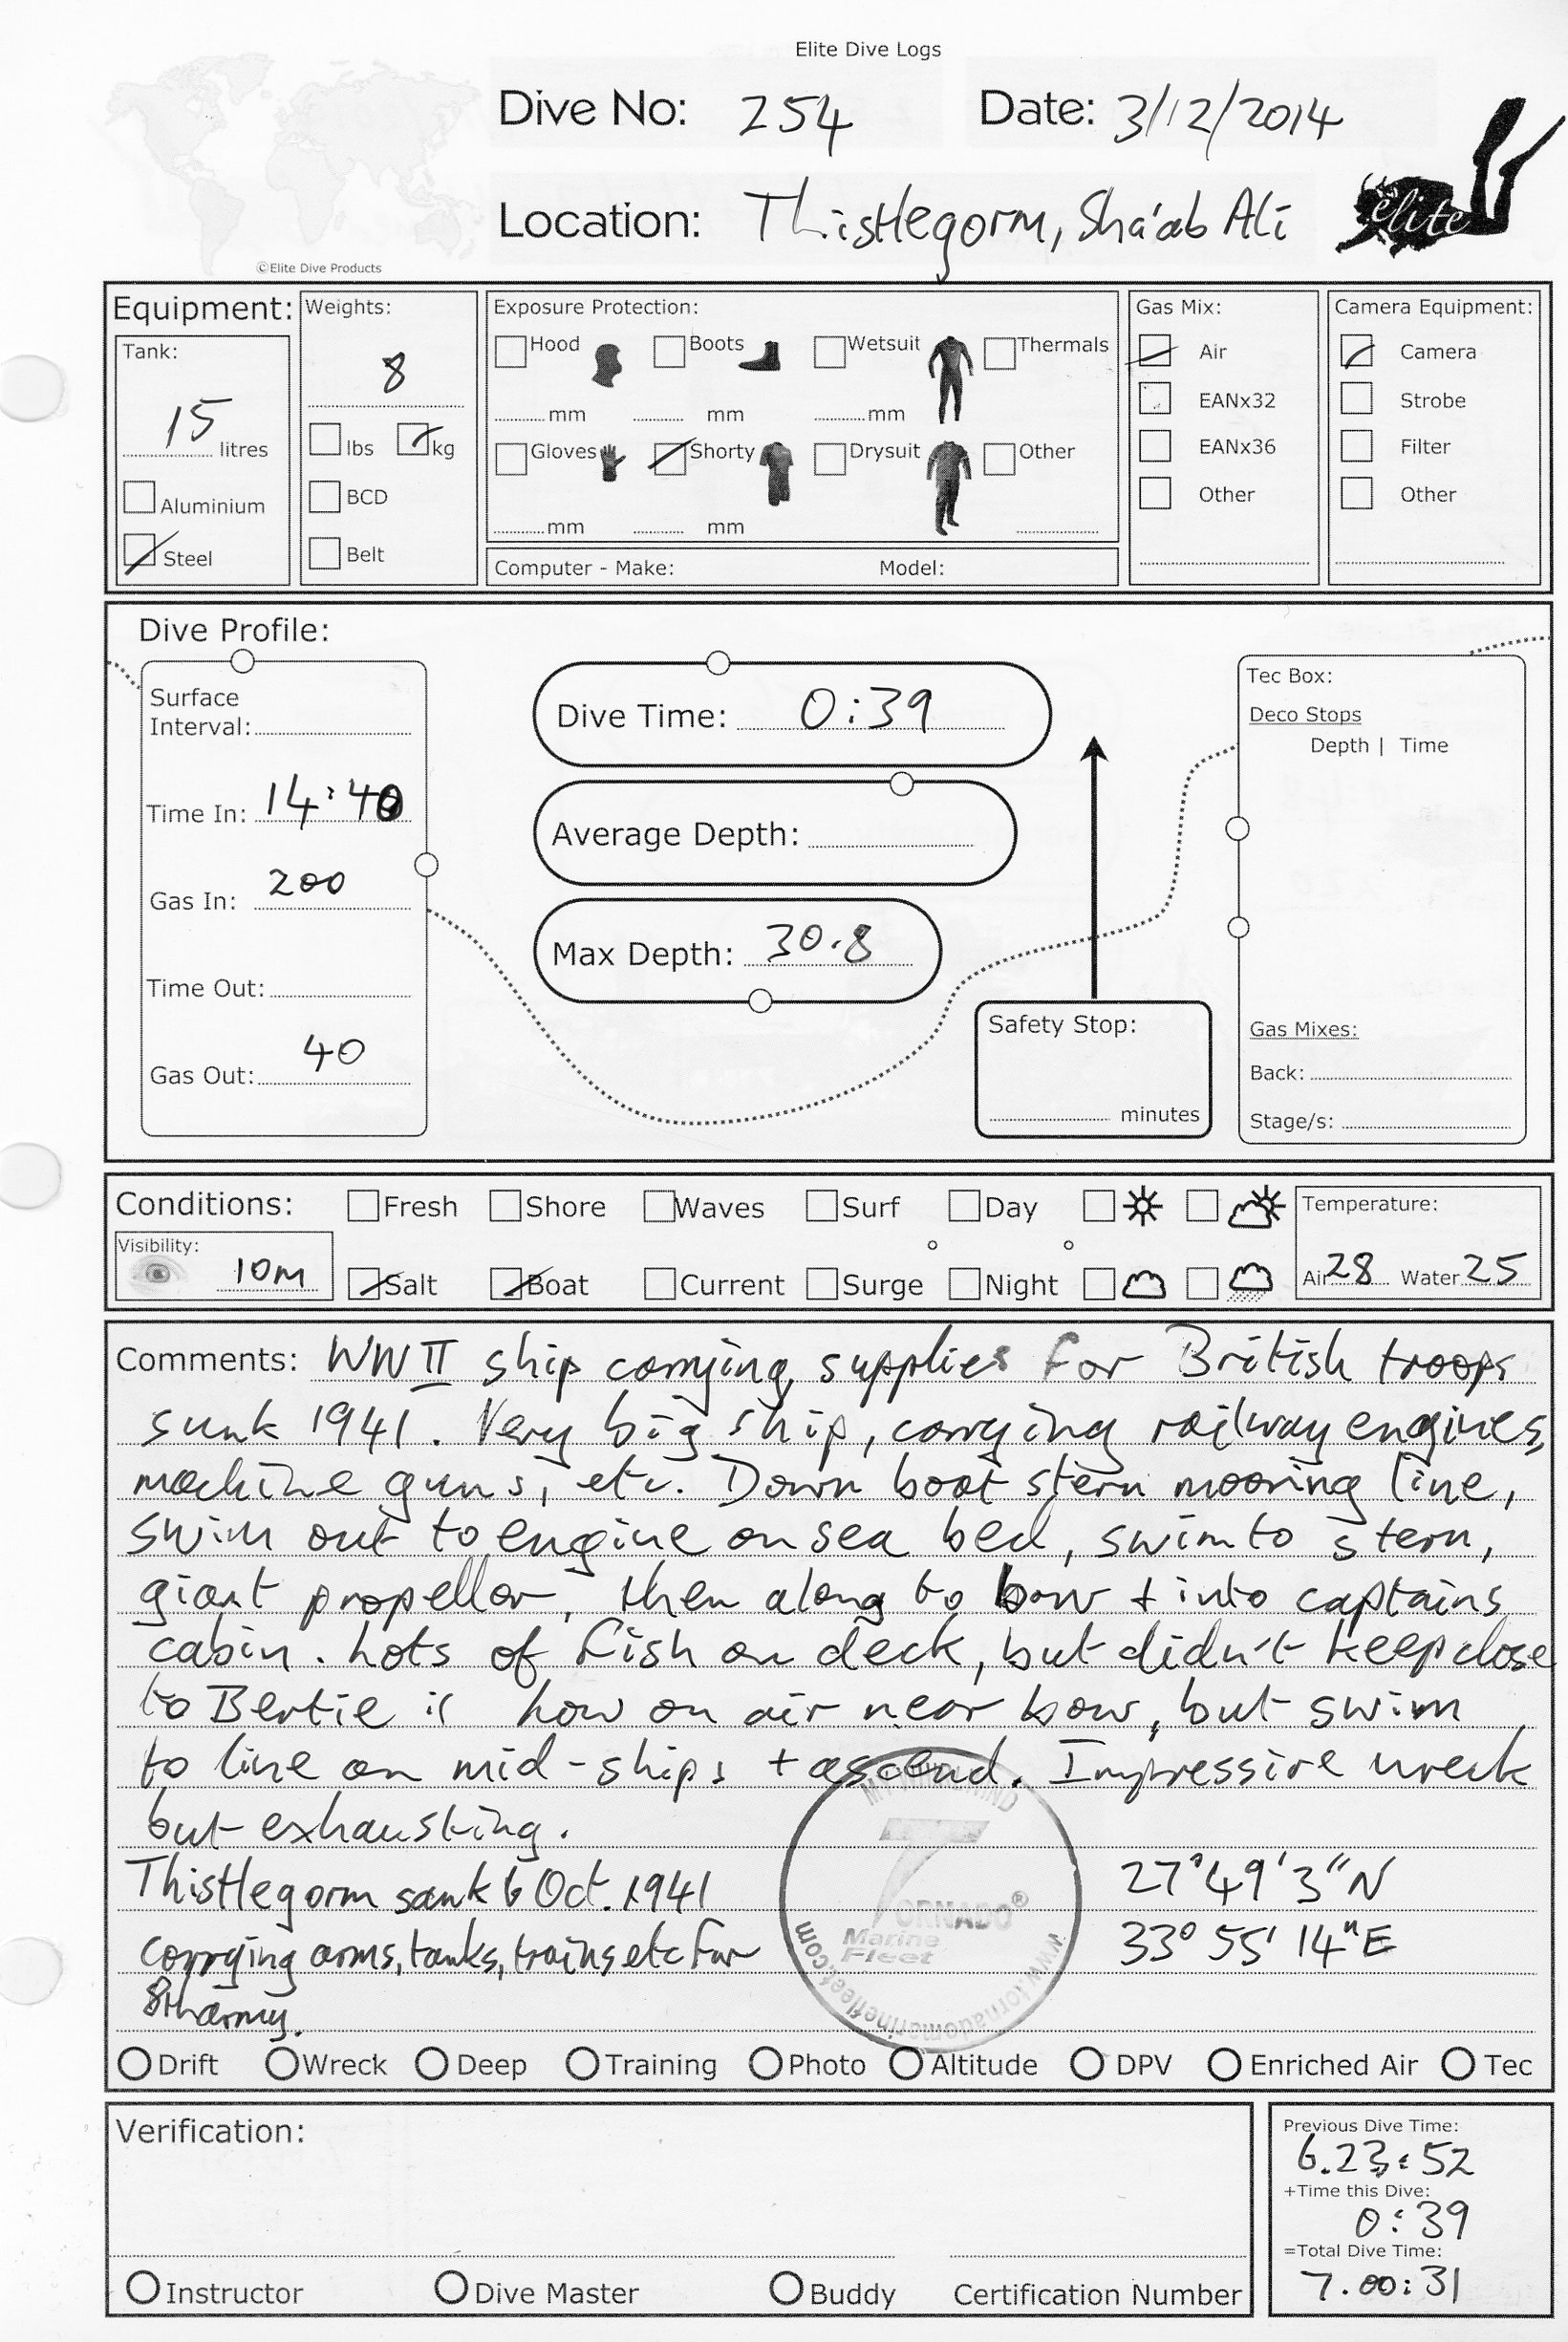 Elite Dive Logs
Dive No: 254 Date: 3/12/2014
Location: Thistlegorm, Sha'ab Ali
élite
©Elite Dive Products
Equipment:
Tank:
15 litres
Aluminium
Steel
Weights:
8
lbs kg
BCD
Belt
Exposure Protection:
Hood Boots Wetsuit Thermals
mm mm mm
Gloves Shorty Drysuit Other
mm mm
Computer - Make: Model:
Gas Mix:
Air
EANx32
EANx36
Other
Camera Equipment:
Camera
Strobe
Filter
Other
Dive Profile:
Surface
Interval:
Time In: 14:40
Gas In: 200
Time Out:
Gas Out: 40
Dive Time: 0:39
Average Depth:
Max Depth: 30.8
Safety Stop:
minutes
Tec Box:
Deco Stops
Depth | Time
Gas Mixes:
Back:
Stage/s:
Conditions: Fresh Shore Waves Surf Day
Visibility: 10m
Salt Boat Current Surge Night
Temperature:
Air 28 Water 25
Comments: WWII ship carrying supplies for British troops
sunk 1941. Very big ship, carrying railway engines,
machine guns, etc. Down boat stern mooring line,
swim out to engine on sea bed, swim to stern,
giant propellor, then along to bow + into captains
cabin. Lots of fish on deck, but didn't keep close
to Bertie is how on air near bow, but swim
to line on mid-ships + ascend. Impressive wreck
but exhausting.
Thistlegorm sank 6 Oct. 1941 27°49'3"N
carrying arms, tanks, trains etc for 33° 55' 14"E
8th army.
TORNADO®
Marine
Fleet
www.tornadomarinefleet.com
Drift Wreck Deep Training Photo Altitude DPV Enriched Air Tec
Verification:
Instructor Dive Master Buddy Certification Number
Previous Dive Time:
6.23:52
+Time this Dive:
0:39
=Total Dive Time:
7.00:31